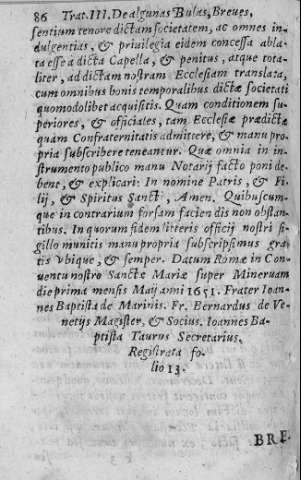 86 Trat. III. De algunas Bulas, Breues,
sentium tenore dictam societatem, ac omnes in
dulgentias, & priuilegia eidem concessa abla-
ta esse à dicta Capella, & penitus, atque tota-
liter, ad dictam nostram Ecclesiam translata,
cum omnibus bonis temporalibus dictæ societati
quomodolibet acquisitis. Quam conditionem su-
periores, & officiales, tam Ecclesiæ prædictæ
quàm Confraternitatis admittere, & manu pro-
pria subscribere teneantur. Quæ omnia in in-
strumento publico manu Notarij facto poni de-
bent, & explicari: In nomine Patris, & Fi-
lij, & Spiritus Sancti, Amen. Quibuscum-
que in contrarium forsam facien dis non obstan-
tibus. In quorum fidem literis officij nostri si-
gillo munitis manu propria subscripsimus gra-
tis vbique, & semper. Datum Romæ in Con-
uentu nostro Sanctæ Mariæ super Mineruam
die prima mensis Maij anni 1651. Frater Ioan-
nes Baptista de Marinis. Fr. Bernardus de Ve-
netijs Magister, & Socius. Ioannes Ba-
ptista Taurus Secretarius.
Registrata fo-
lio 13.
BRE-